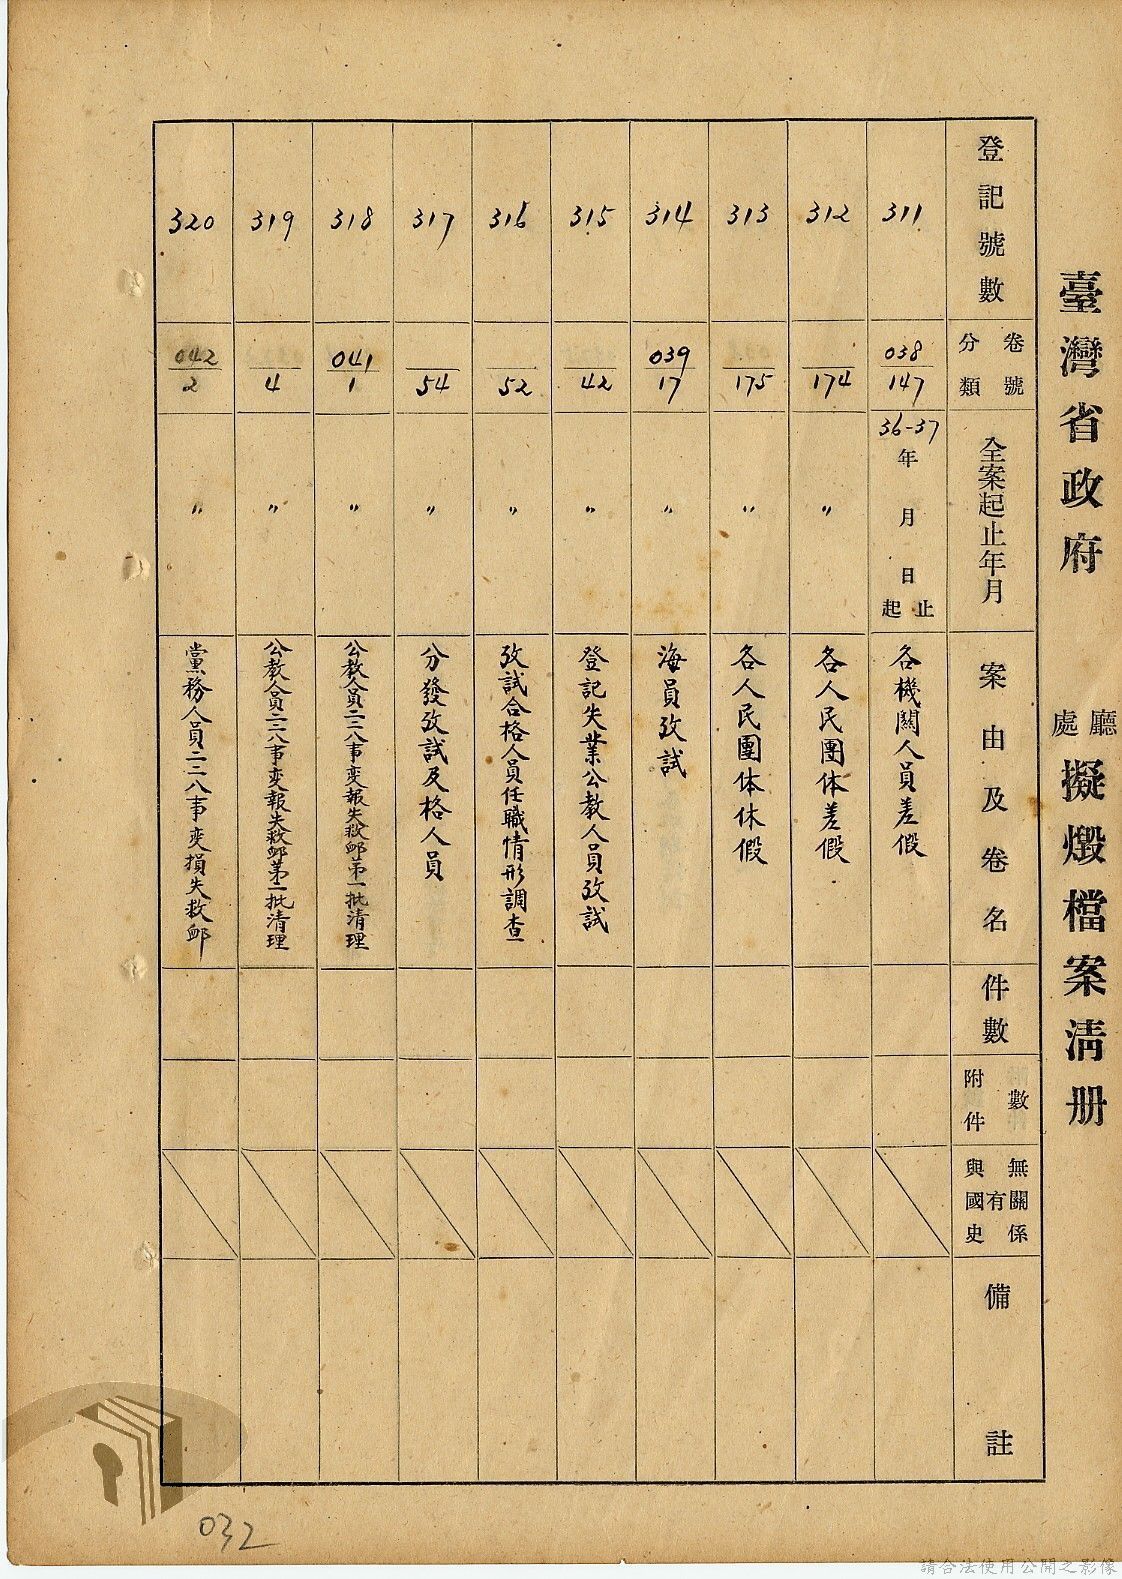 臺灣省政府 廳處擬燬檔案清册
登記號數
分類 卷號
全案起止年月
案由及卷名
件數
附件 數
與國史 有 無關係
備註
311
038
147
36-37
年 月 日
起 止
各機關人員差假
312
174
〃
各人民團体差假
313
175
〃
各人民團体休假
314
039
17
〃
海員攷試
315
42
〃
登記失業公教人員攷試
316
52
〃
攷試合格人員任職情形調查
317
54
〃
分發攷試及格人員
318
041
1
〃
公教人員二二八事变報失救卹第一批清理
319
4
〃
公教人員二二八事变報失救卹第二批清理
320
042
2
〃
黨務人員二二八事变損失救卹
032
請合法使用公開之影像